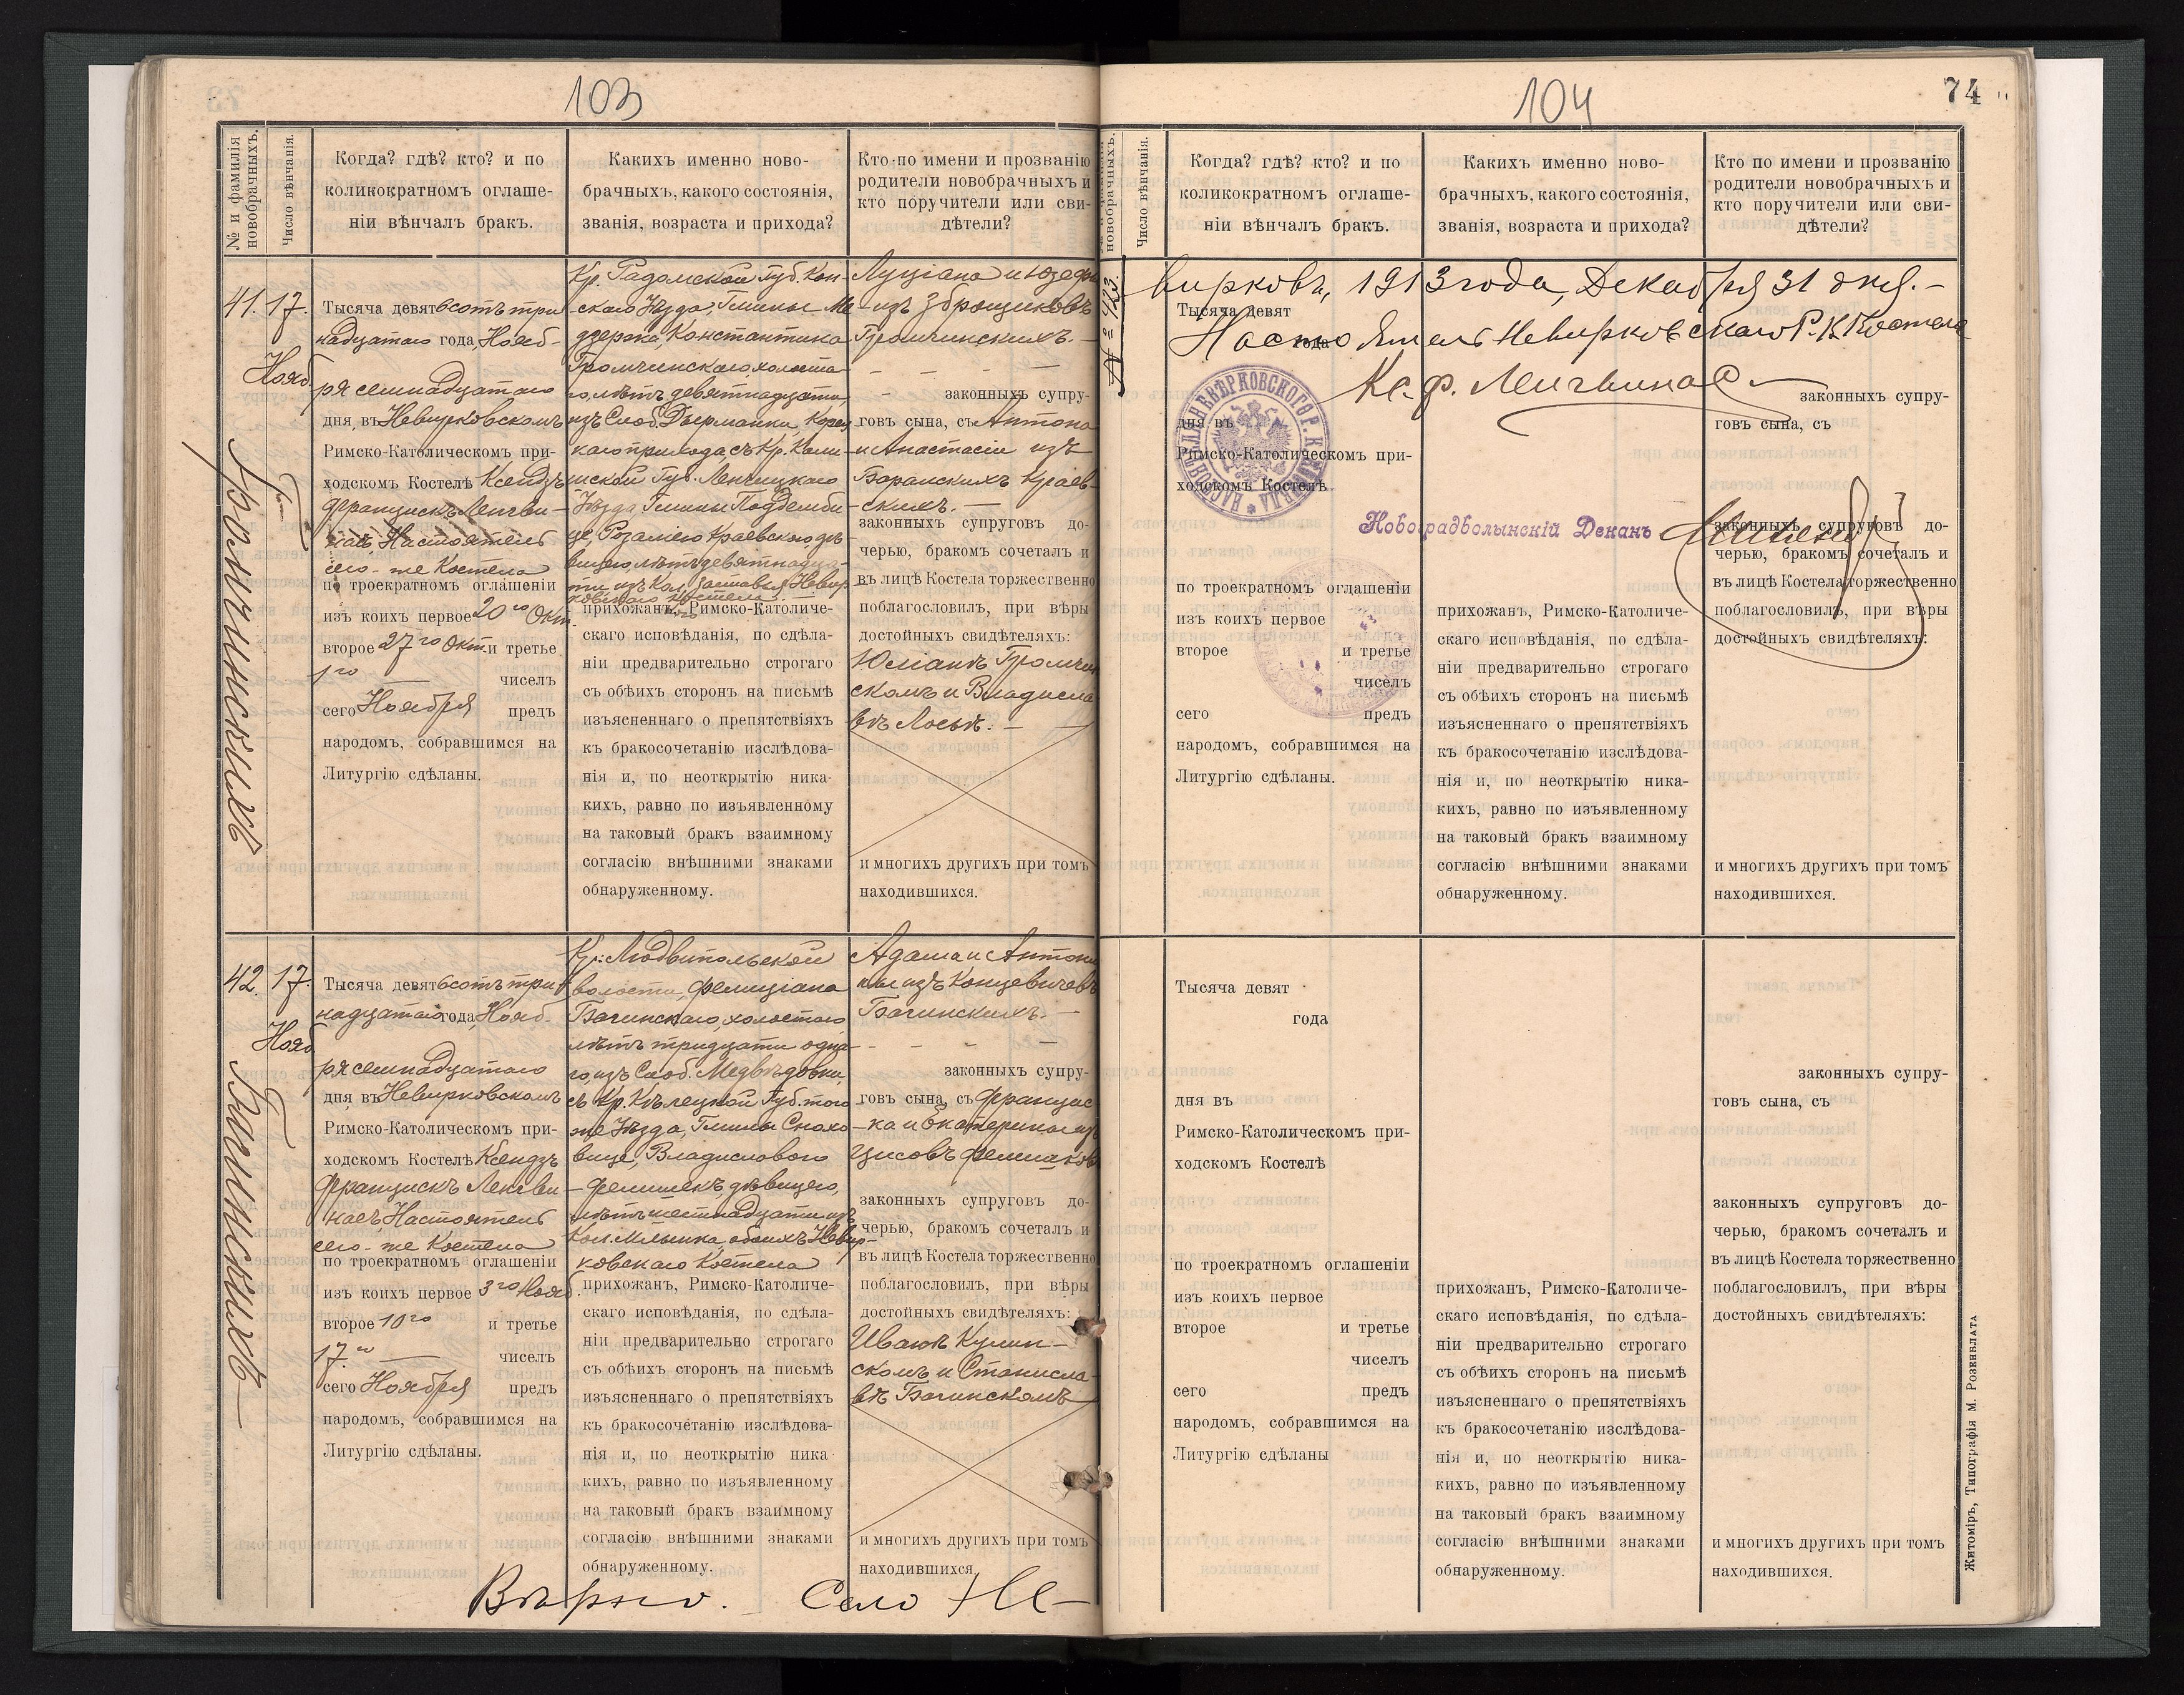 103
№ и фамилія новобрачныхъ.
Число вѣнчанія.
Когда? гдѣ? кто? и по
коликократномъ оглаше-
ніи вѣнчалъ бракъ.
Какихъ именно ново-
брачныхъ, какого состоянія,
званія, возраста и прихода?
Кто по имени и прозванію
родители новобрачныхъ и
кто поручители или сви-
дѣтели?
41.
17.
Нояб.
Громчинскихъ
Тысяча девятьсотъ три
надцатаго года, Нояб-
ря семнадцатаго
дня, въ Невирковскомъ
Римско-Католическомъ при-
ходскомъ Костелѣ Ксендзъ
Францискъ Ленгви-
насъ Настоятель
сего-же Костела
по троекратномъ оглашеніи
изъ коихъ первое 20го Окт.
второе 27го Окт. и третье
1го чиселъ
сего Ноября предъ
народомъ, собравшимся на
Литургію сдѣланы.
Кр. Радомской Губ. Кон-
скаго Уѣзда, Гмины
Константина
Громчинскаго, холоста
го, лѣтъ девятнадцати
изъ Слоб. Дерманки, Корец
каго прихода, съ Кр. Кали-
шской Губ. Ленчицкаго
Уѣзда Гмины Поддемби-
це, Розаліею Краевскою, дѣ
вицею лѣтъ девятнадца-
ти изъ Кол. Заставья Невир
ковскаго Костела.
прихожанъ, Римско-Католиче-
скаго исповѣданія, по сдѣла-
ніи предварительно строгаго
съ обѣихъ сторонъ на письмѣ
изъясненнаго о препятствіяхъ
къ бракосочетанію изслѣдова-
нія и, по неоткрытію ника-
кихъ, равно по изъявленному
на таковый бракъ взаимному
согласію внѣшними знаками
обнаруженному.
Луціана и Юзефы
изъ Збронщиковъ
Громчинскихъ.
законныхъ супру-
говъ сына, съ Антона
и Анастасіи изъ
Баранскихъ Краев-
скихъ.
законныхъ супруговъ до-
черью, бракомъ сочеталъ и
въ лицѣ Костела торжественно
поблагословилъ, при вѣры
достойныхъ свидѣтеляхъ:
Юліанѣ Громчин
скомъ и Владисла
вѣ Лосьѣ.
и многихъ другихъ при томъ
находившихся.
42.
17.
Нояб.
Багинскихъ
Тысяча девятьсотъ три
надцатаго года, Нояб-
ря семнадцатаго
дня, въ Невирковскомъ
Римско-Католическомъ при-
ходскомъ Костелѣ Ксендзъ
Францискъ Ленгви
насъ, Настоятель
сего-же Костела
по троекратномъ оглашеніи
изъ коихъ первое 3го Нояб.
второе 10го и третье
17го чиселъ
сего Ноября предъ
народомъ, собравшимся на
Литургію сдѣланы.
Кр. Людвипольской
волости, Фелиціана
Багинскаго, холостаго
лѣтъ тридцати одна-
го, изъ Слоб. Медвѣдовки,
съ Кр. Кѣлецкой Губ. того
же Уѣзда, Гмины Снохо
вице, Владиславою
Фелишекъ, дѣвицею,
лѣтъ шестнадцати изъ
Кол. Млынка, обоихъ Невир-
ковскаго Костела
прихожанъ, Римско-Католиче-
скаго исповѣданія, по сдѣла-
ніи предварительно строгаго
съ обѣихъ сторонъ на письмѣ
изъясненнаго о препятствіяхъ
къ бракосочетанію изслѣдова-
нія и, по неоткрытію ника
кихъ, равно по изъявленному
на таковый бракъ взаимному
согласію внѣшними знаками
обнаруженному.
Адама и Антони
ны изъ Концевичевъ
Багинскихъ.
законныхъ супру-
говъ сына, съ Францис
ка и Екатерины изъ
Цисовъ Фелишаковъ
законныхъ супруговъ до-
черью, бракомъ сочеталъ и
въ лицѣ Костела торжественно
поблагословилъ, при вѣры
достойныхъ свидѣтеляхъ:
Иванѣ Кулин-
скомъ и Станисла-
вѣ Багинскомъ
и многихъ другихъ при томъ
находившихся.
Вѣрно. Село Не-
104
74
новобрачныхъ.
Число вѣнчанія.
Когда? гдѣ? кто? и по
коликократномъ оглаше-
ніи вѣнчалъ бракъ.
Какихъ именно ново-
брачныхъ, какого состоянія,
званія, возраста и прихода?
Кто по имени и прозванію
родители новобрачныхъ и
кто поручители или сви-
дѣтели?
№ 423.
вирковъ, 1913 года, Декабря 31 дня.
Настоятель Невирковскаго Р. К. Костела
Кс. Ф. Ленгвинас
Новоградволынскій Деканъ
Тысяча девят
года
дня въ
Римско-Католическомъ при-
ходскомъ Костелѣ
по троекратномъ оглашеніи
изъ коихъ первое
второе и третье
чиселъ
сего предъ
народомъ, собравшимся на
Литургію сдѣланы.
прихожанъ, Римско-Католиче-
скаго исповѣданія, по сдѣла-
ніи предварительно строгаго
съ обѣихъ сторонъ на письмѣ
изъясненнаго о препятствіяхъ
къ бракосочетанію изслѣдова-
нія и, по неоткрытію ника-
кихъ, равно по изъявленному
на таковый бракъ взаимному
согласію внѣшними знаками
обнаруженному.
законныхъ супру-
говъ сына, съ
законныхъ супруговъ до-
черью, бракомъ сочеталъ и
въ лицѣ Костела торжественно
поблагословилъ, при вѣры
достойныхъ свидѣтеляхъ:
и многихъ другихъ при томъ
находившихся.
Тысяча девят
года
дня въ
Римско-Католическомъ при-
ходскомъ Костелѣ
по троекратномъ оглашеніи
изъ коихъ первое
второе и третье
чиселъ
сего предъ
народомъ, собравшимся на
Литургію сдѣланы
прихожанъ, Римско-Католиче-
скаго исповѣданія, по сдѣла-
ніи предварительно строгаго
съ обѣихъ сторонъ на письмѣ
изъясненнаго о препятствіяхъ
къ бракосочетанію изслѣдова-
нія и, по неоткрытію ника-
кихъ, равно по изъявленному
на таковый бракъ взаимному
согласію внѣшними знаками
обнаруженному.
законныхъ супру-
говъ сына, съ
законныхъ супруговъ до-
черью, бракомъ сочеталъ и
въ лицѣ Костела торжественно
поблагословилъ, при вѣры
достойныхъ свидѣтеляхъ:
и многихъ другихъ при томъ
находившихся.
Житоміръ, Типографія М. Розенблата